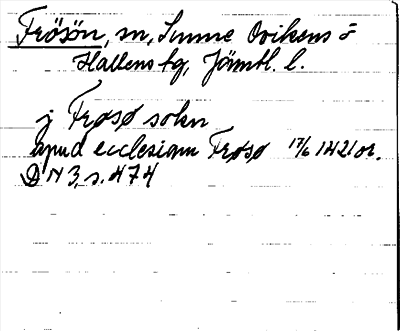 Frösön, sn, Sunne Ovikens o
Hallens tg, Jämtl. l.
j Frøsø sokn
apud ecclesiam Frøsø 17/6 1421 or.
DN 3, s. 474